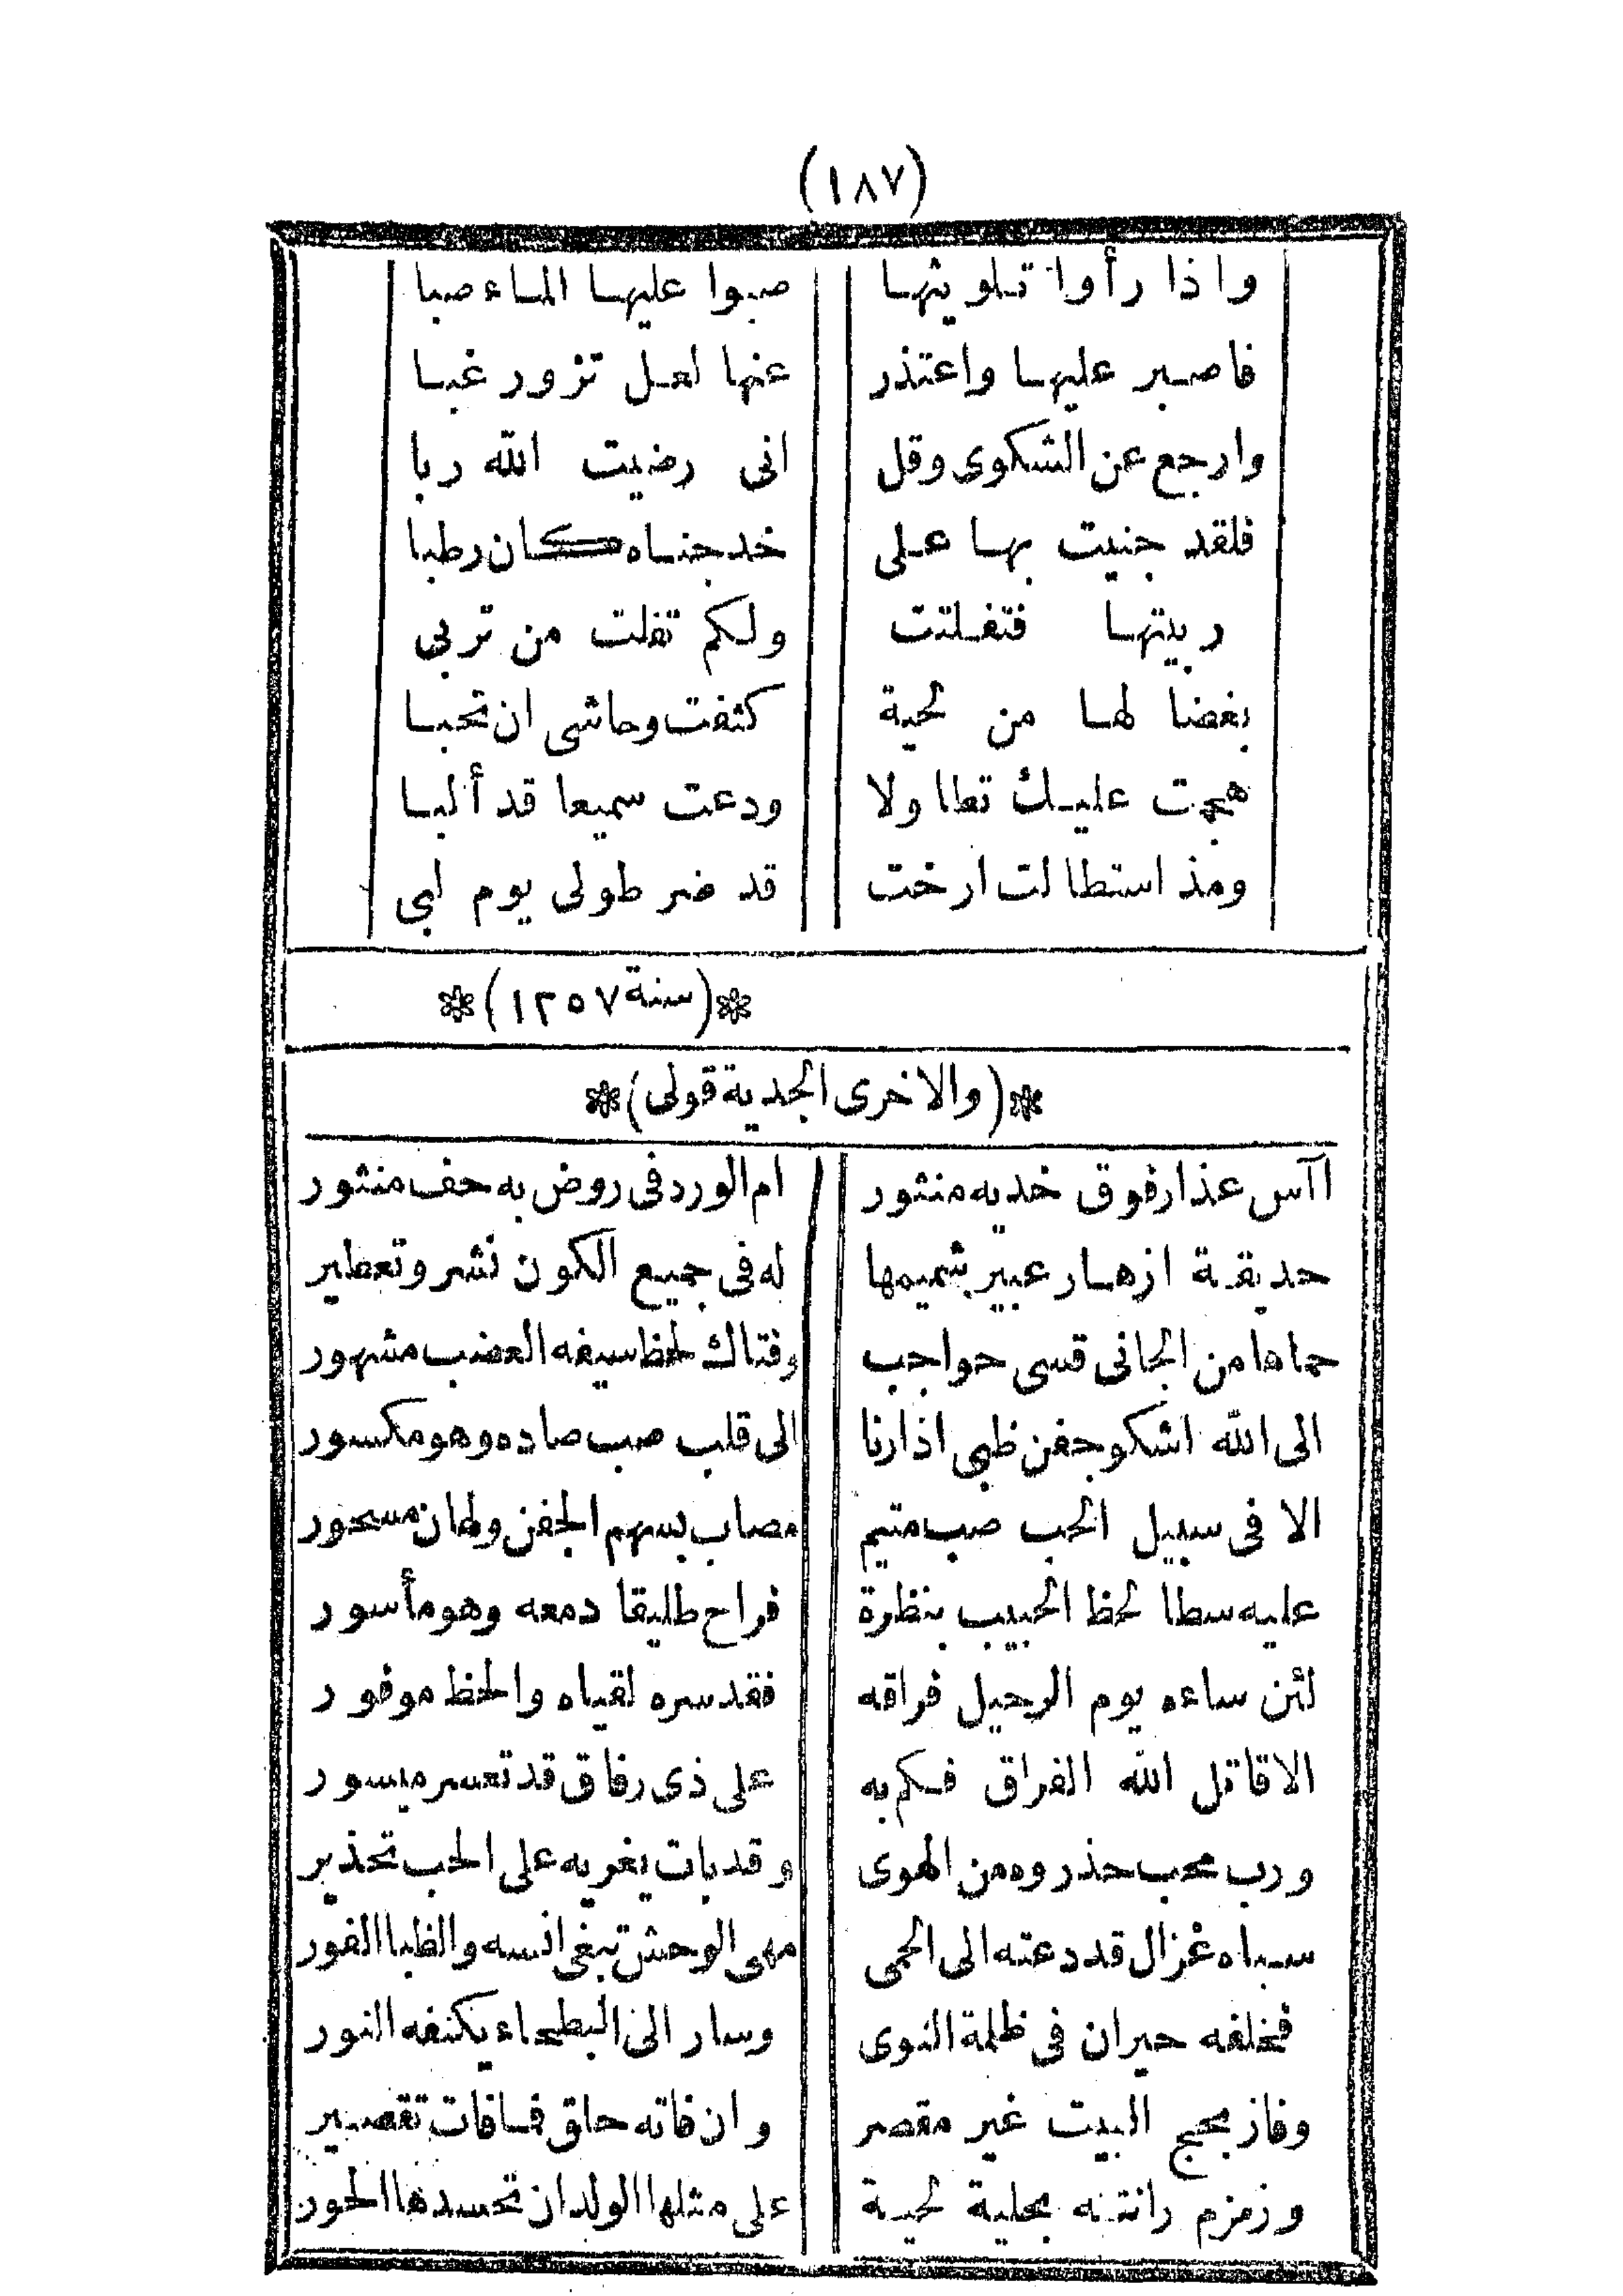 (١٨٧)
واذا رأوا تلويثها صبوا عليها الماء صبا
فاصبر عليها واعتذر عنها لعل تزور غبا
وارجع عن الشكوى وقل انى رضيت الله ربا
فلقد جنيت بها على خد جناه كان رطبا
ربيتها فتفلتت ولكم تفلت من تربى
بغضا لها من لحية كثفت وحاشى ان تحبا
هجمت عليك تطا ولا ودعت سميعا قد ألبا
ومذ استطالت ارخت قد ضر طولى يوم لبى
*(سنة ١٢٥٧)*
*(والاخرى الجدية قولى)*
اآس عذار فوق خديه منثور ام الورد فى روض به حف منثور
حديقة ازهار عبير شميمها له فى جميع الكون نشر وتعطير
حماها من الجانى قسى حواجب وفتاك لحظ سيفه العضب مشهور
الى الله اشكو جفن ظبى اذا رنا الى قلب صب صاده وهو مكسور
الا فى سبيل الحب صب متيم مصاب بسهم الجفن ولهان مسحور
عليه سطا لحظ الحبيب بنظرة فراح طليقا دمعه وهو مأسور
لئن ساءه يوم الرحيل فراقه فقد سره لقياه والحظ موفور
الا قاتل الله الفراق فكم به على ذى رفاق قد تعسر ميسور
ورب محب حذروه من الهوى وقد بات يغريه على الحب تحذير
سباه غزال قد دعته الى الحمى مهى الوحش تبغى انسه والظبا الفور
فخلفه حيران فى ظلمة النوى وسار الى البطحاء يكنفه النور
وفاز بحج البيت غير مقصر وان فاته حلق فما فات تقصير
وزمزم زانته بحلية لحية على مثلها الولدان تحسدها الحور